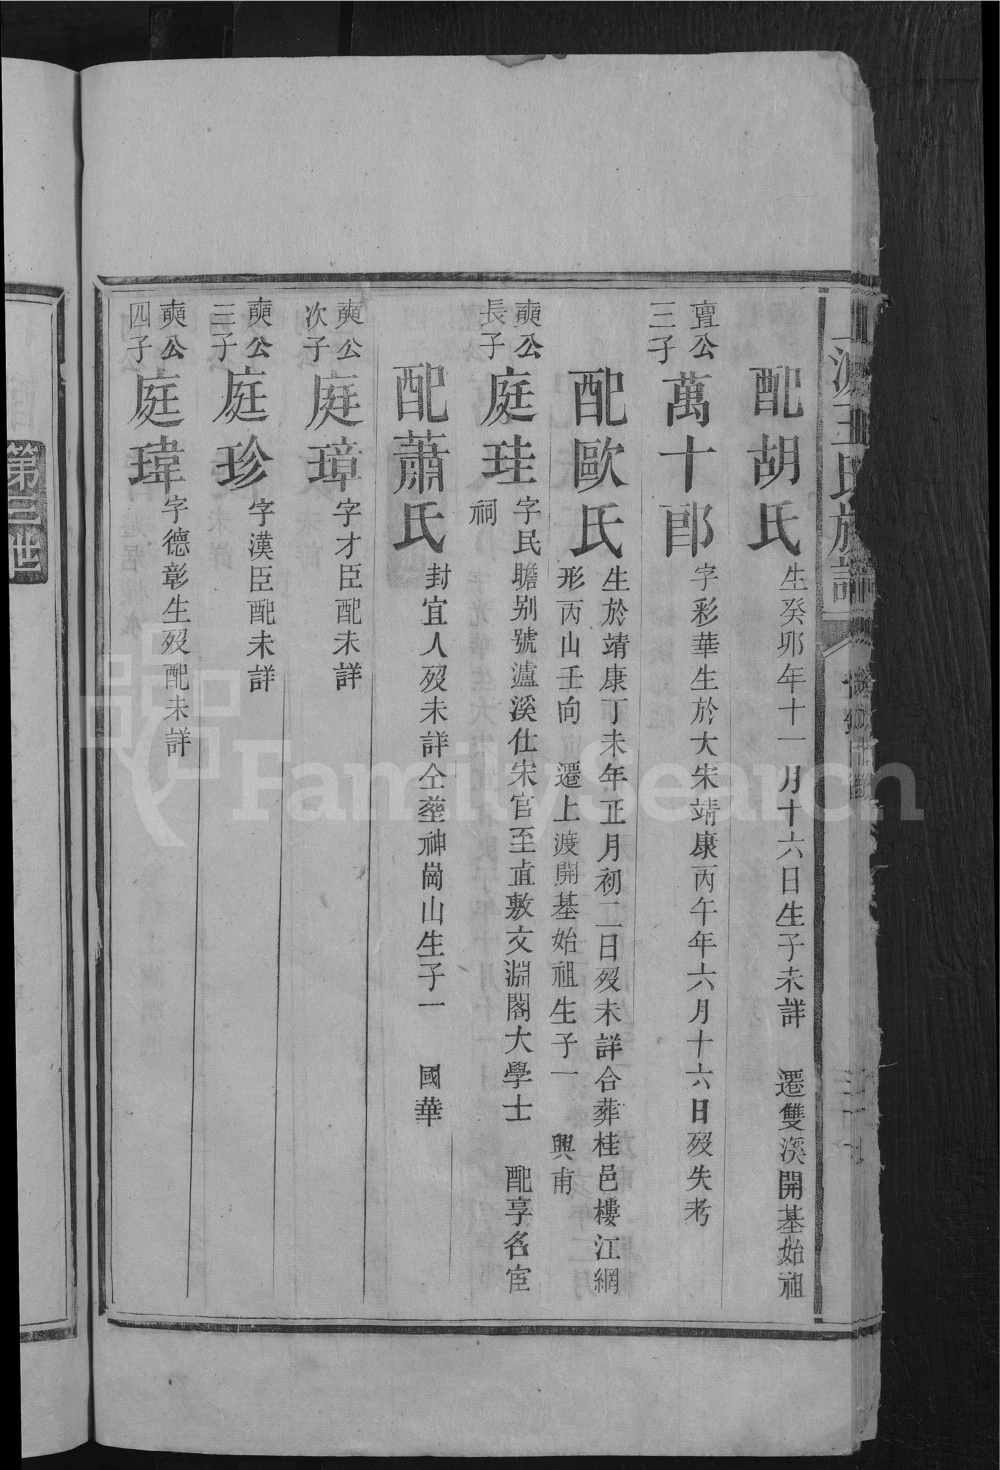 配胡氏
生癸卯年十一月十六日生子未詳 遷雙溪開基始祖
亶公三子
萬十郎
字彩華生於大宋靖康丙午年六月十六日歿失考
配歐氏
生於靖康丁未年正月初二日歿未詳合葬桂邑樓江網
形丙山壬向 遷上渡開基始祖生子一 興甫
奭公長子
庭珪
字民瞻别號瀘溪仕宋官至直敷文淵閣大學士 配享名宦
祠
配蕭氏
封宜人歿未詳仝塟神崗山生子一 國華
奭公次子
庭璋
字才臣配未詳
奭公三子
庭珍
字漢臣配未詳
奭公四子
庭瑋
字德彰生歿配未詳
王氏族譜
第三世
FamilySearch